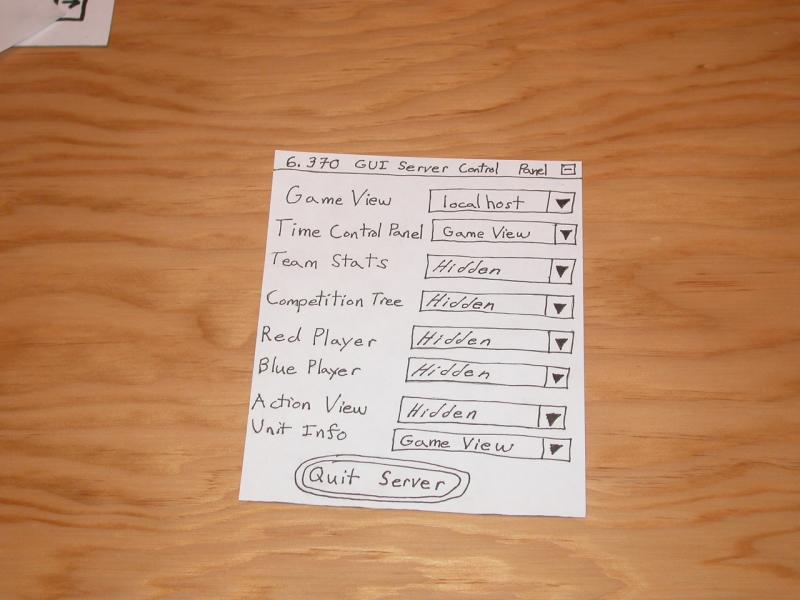 6.370 GUI Server Control Panel
Game View localhost
Time Control Panel Game View
Team Stats Hidden
Competition Tree Hidden
Red Player Hidden
Blue Player Hidden
Action View Hidden
Unit Info Game View
Quit Server